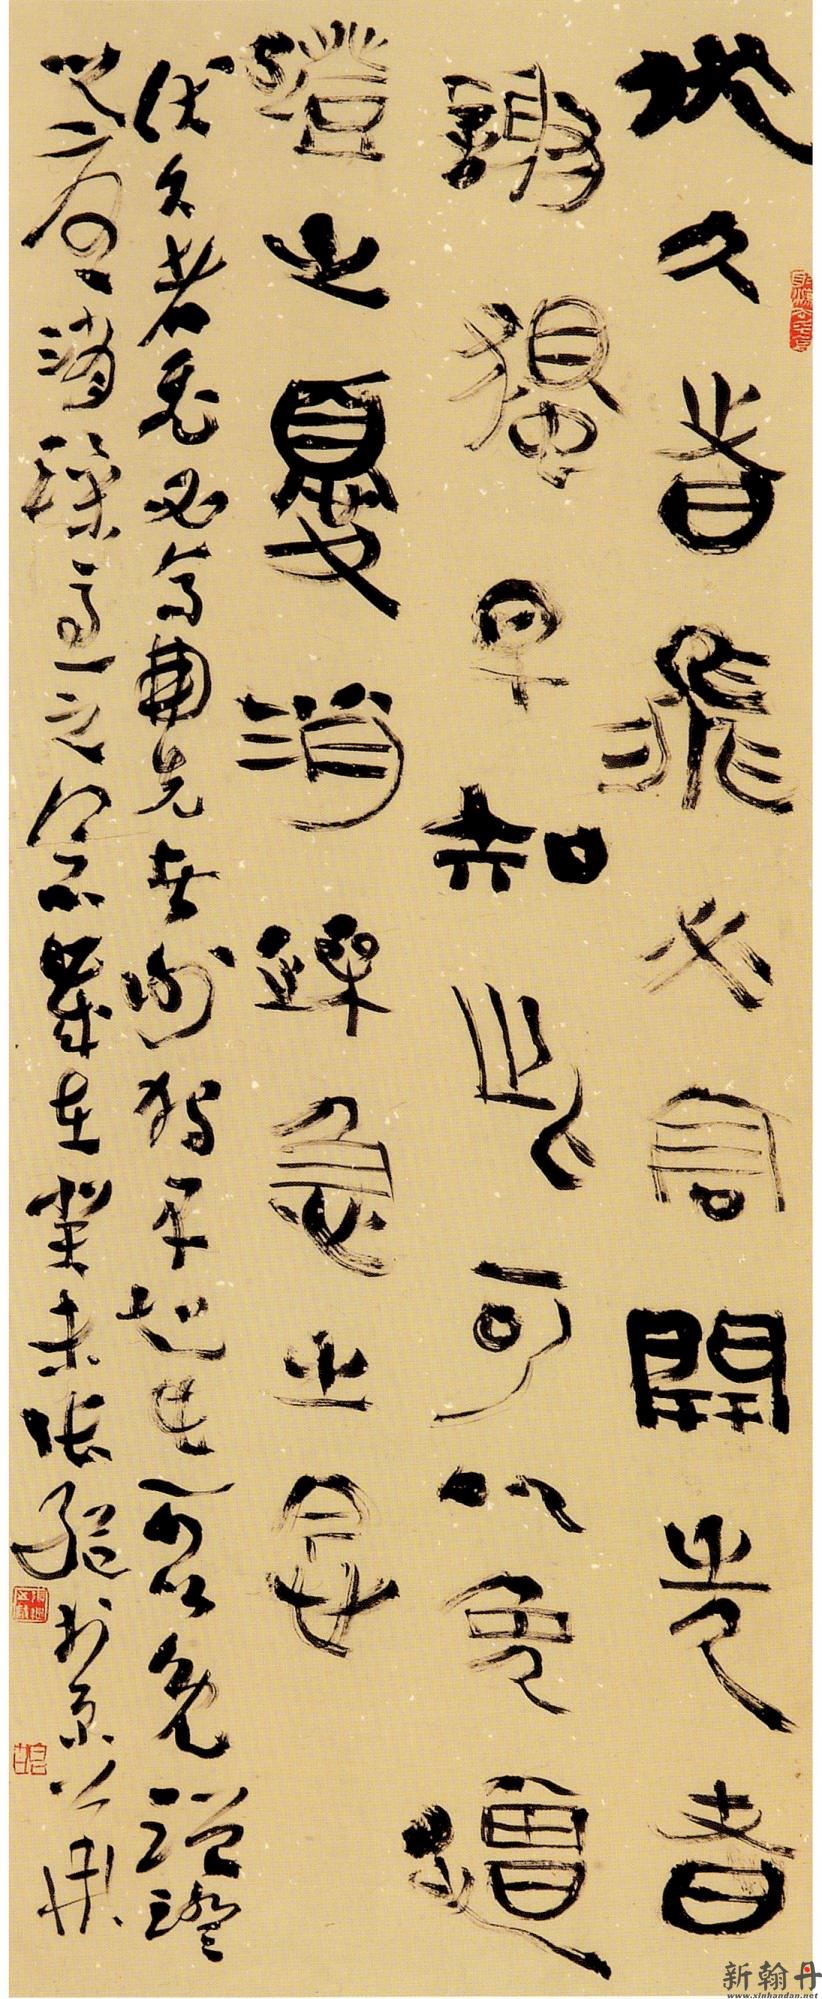 伏久者飛必高開先者
謝獨早知此可以免蹭
蹬之憂消躁急之念
伏久者飛必高開先者謝獨早知此可以免蹭蹬
之憂消躁急之念 在癸未張 於京華
新翰丹
www.xinhandan.net